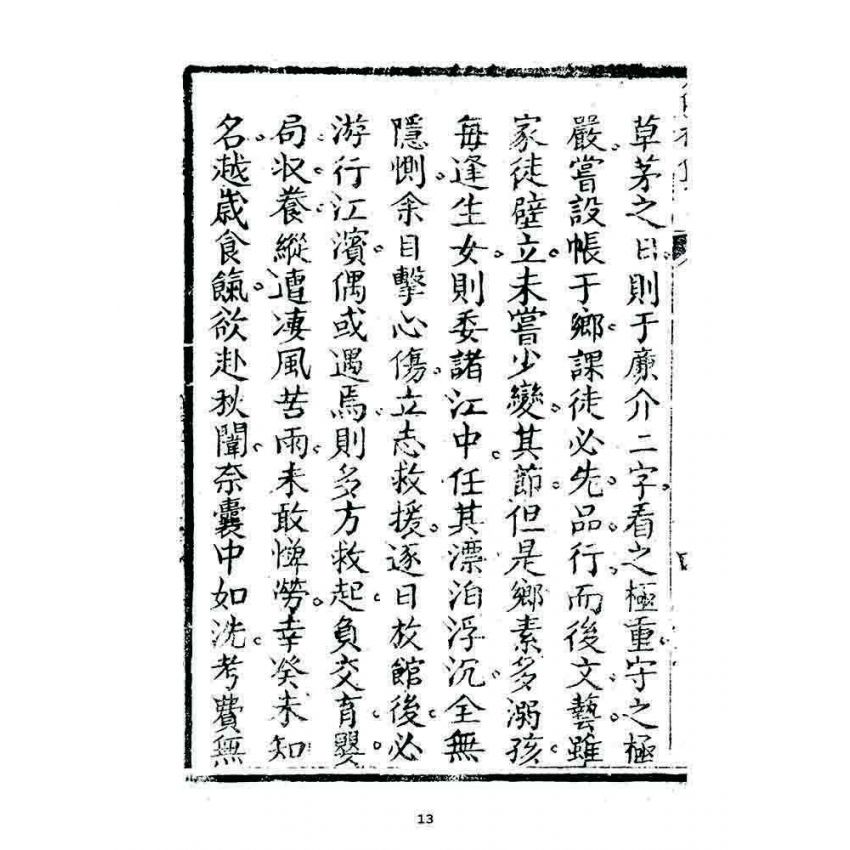 草茅之日則于廉介二字看之極重守之極
嚴嘗設帳于鄉課徒必先品行而後文藝雖
家徒壁立未嘗少變其節但是鄉素多溺孩
每逢生女則委諸江中任其漂泊浮沉全無
隱惻余目擊心傷立志救援逐日放館後必
游行江濱偶或遇焉則多方救起負交育嬰
局収養縱遭凄風苦雨未敢憚勞幸癸未知
名越歲食餼欲赴秋闈奈囊中如洗考費無
13